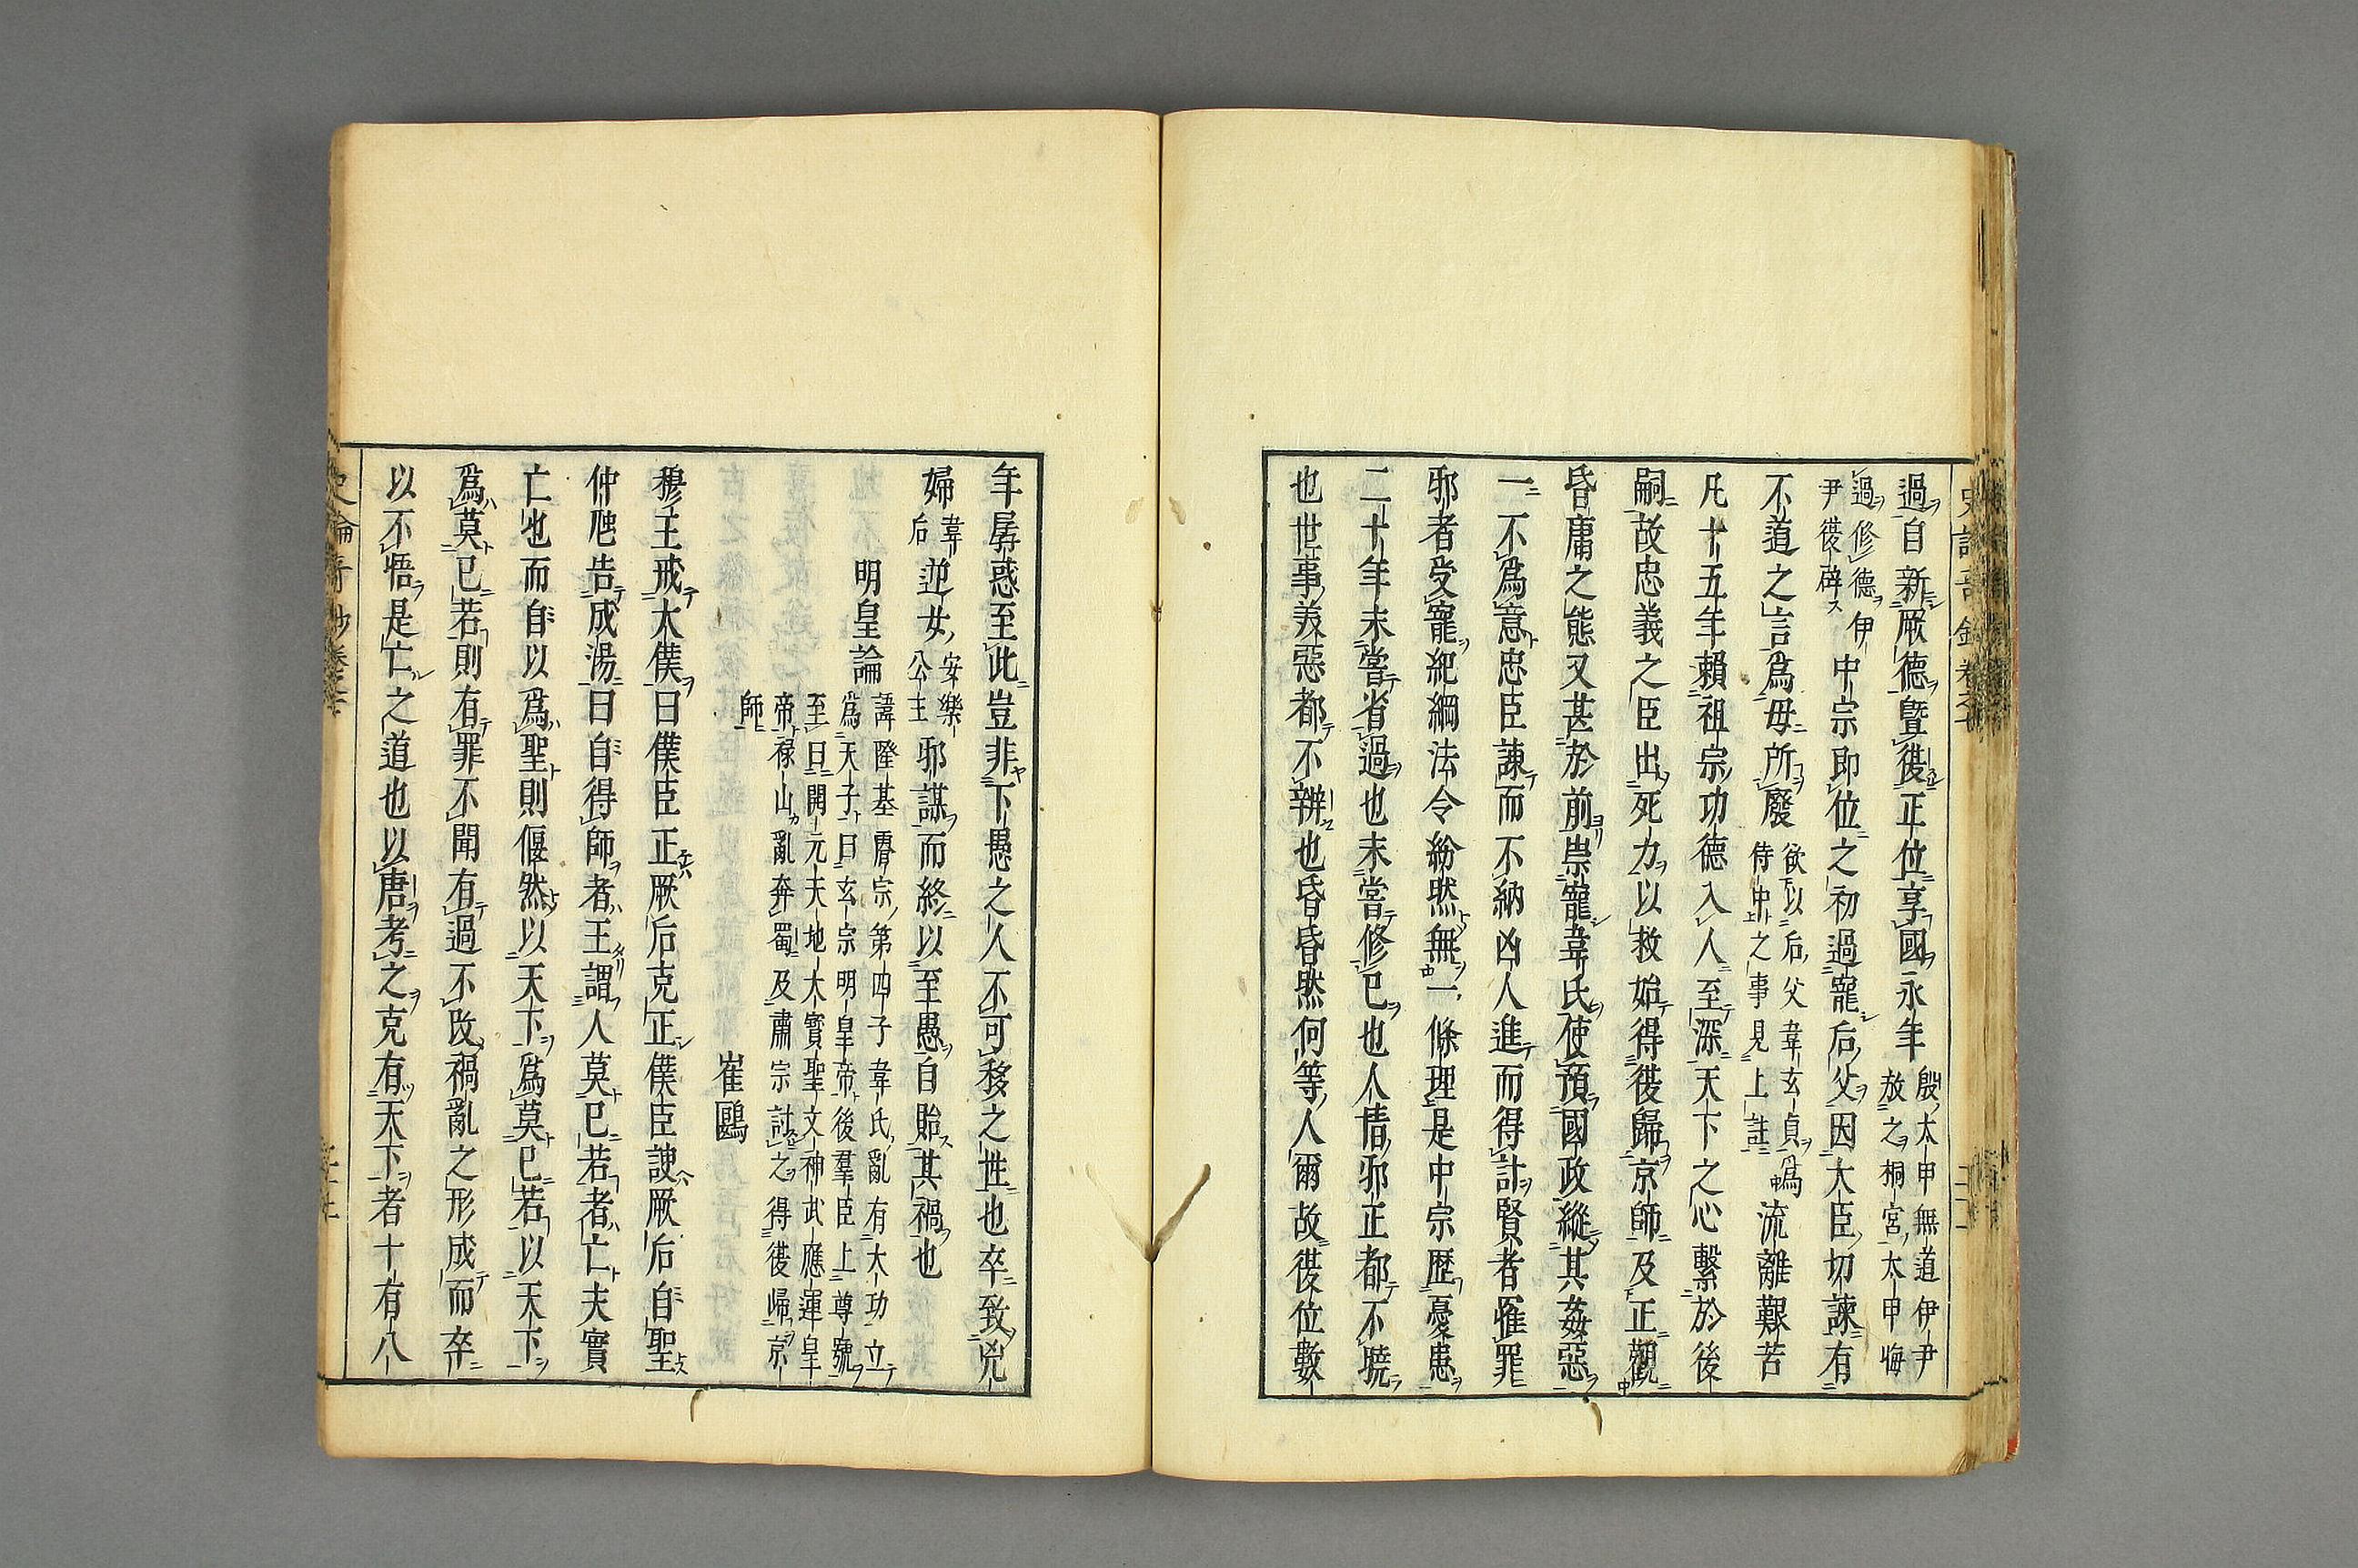 過自新厥德曁復正位享國永年殷太甲無道伊尹放之桐宮太甲悔
過修德伊尹復辟中宗即位之初過寵后父因大臣切諫有
不道之言爲毋所廢欲以后父韋玄貞爲侍中之事見上註流離艱苦
凡十五年頼祖宗功德入人至深天下之心繫於後
嗣故忠義之臣出死力以救始得復歸京師及正觀
昏庸之態又甚於前崇寵韋氏使預國政縱其姦惡
一不爲意忠臣諫而不納凶人進而得計賢者罹罪
邪者受寵紀綱法令紛然無一條理是中宗歷憂患
二十年未嘗省過也未嘗修已也人情邪正都不曉
也世事美惡都不辨也昏昏然何等人爾故復位數
年孱惑至此豈非下愚之人不可移之性也卒致兇
婦韋后逆女安樂公主邪謀而終以至愚自貽其禍也
明皇論諱隆基睿宗第四子韋氏亂有大功立
爲天子曰玄宗明皇帝後羣臣上尊號
至曰開元天地大寳聖文神武應運皇
帝禄山亂奔蜀及肅宗討之得復帰京
師
崔鷗
穆王戒太僕曰僕臣正厥后克正僕臣諛厥后自聖
仲虺告成湯曰自得師者王謂人莫已若者亡夫實
亡也而自以爲聖則偃然以天下爲莫已若以天下
爲莫已若則有罪不聞有過不改禍亂之形成而卒
以不悟是亡之道也以唐考之克有天下者十有八